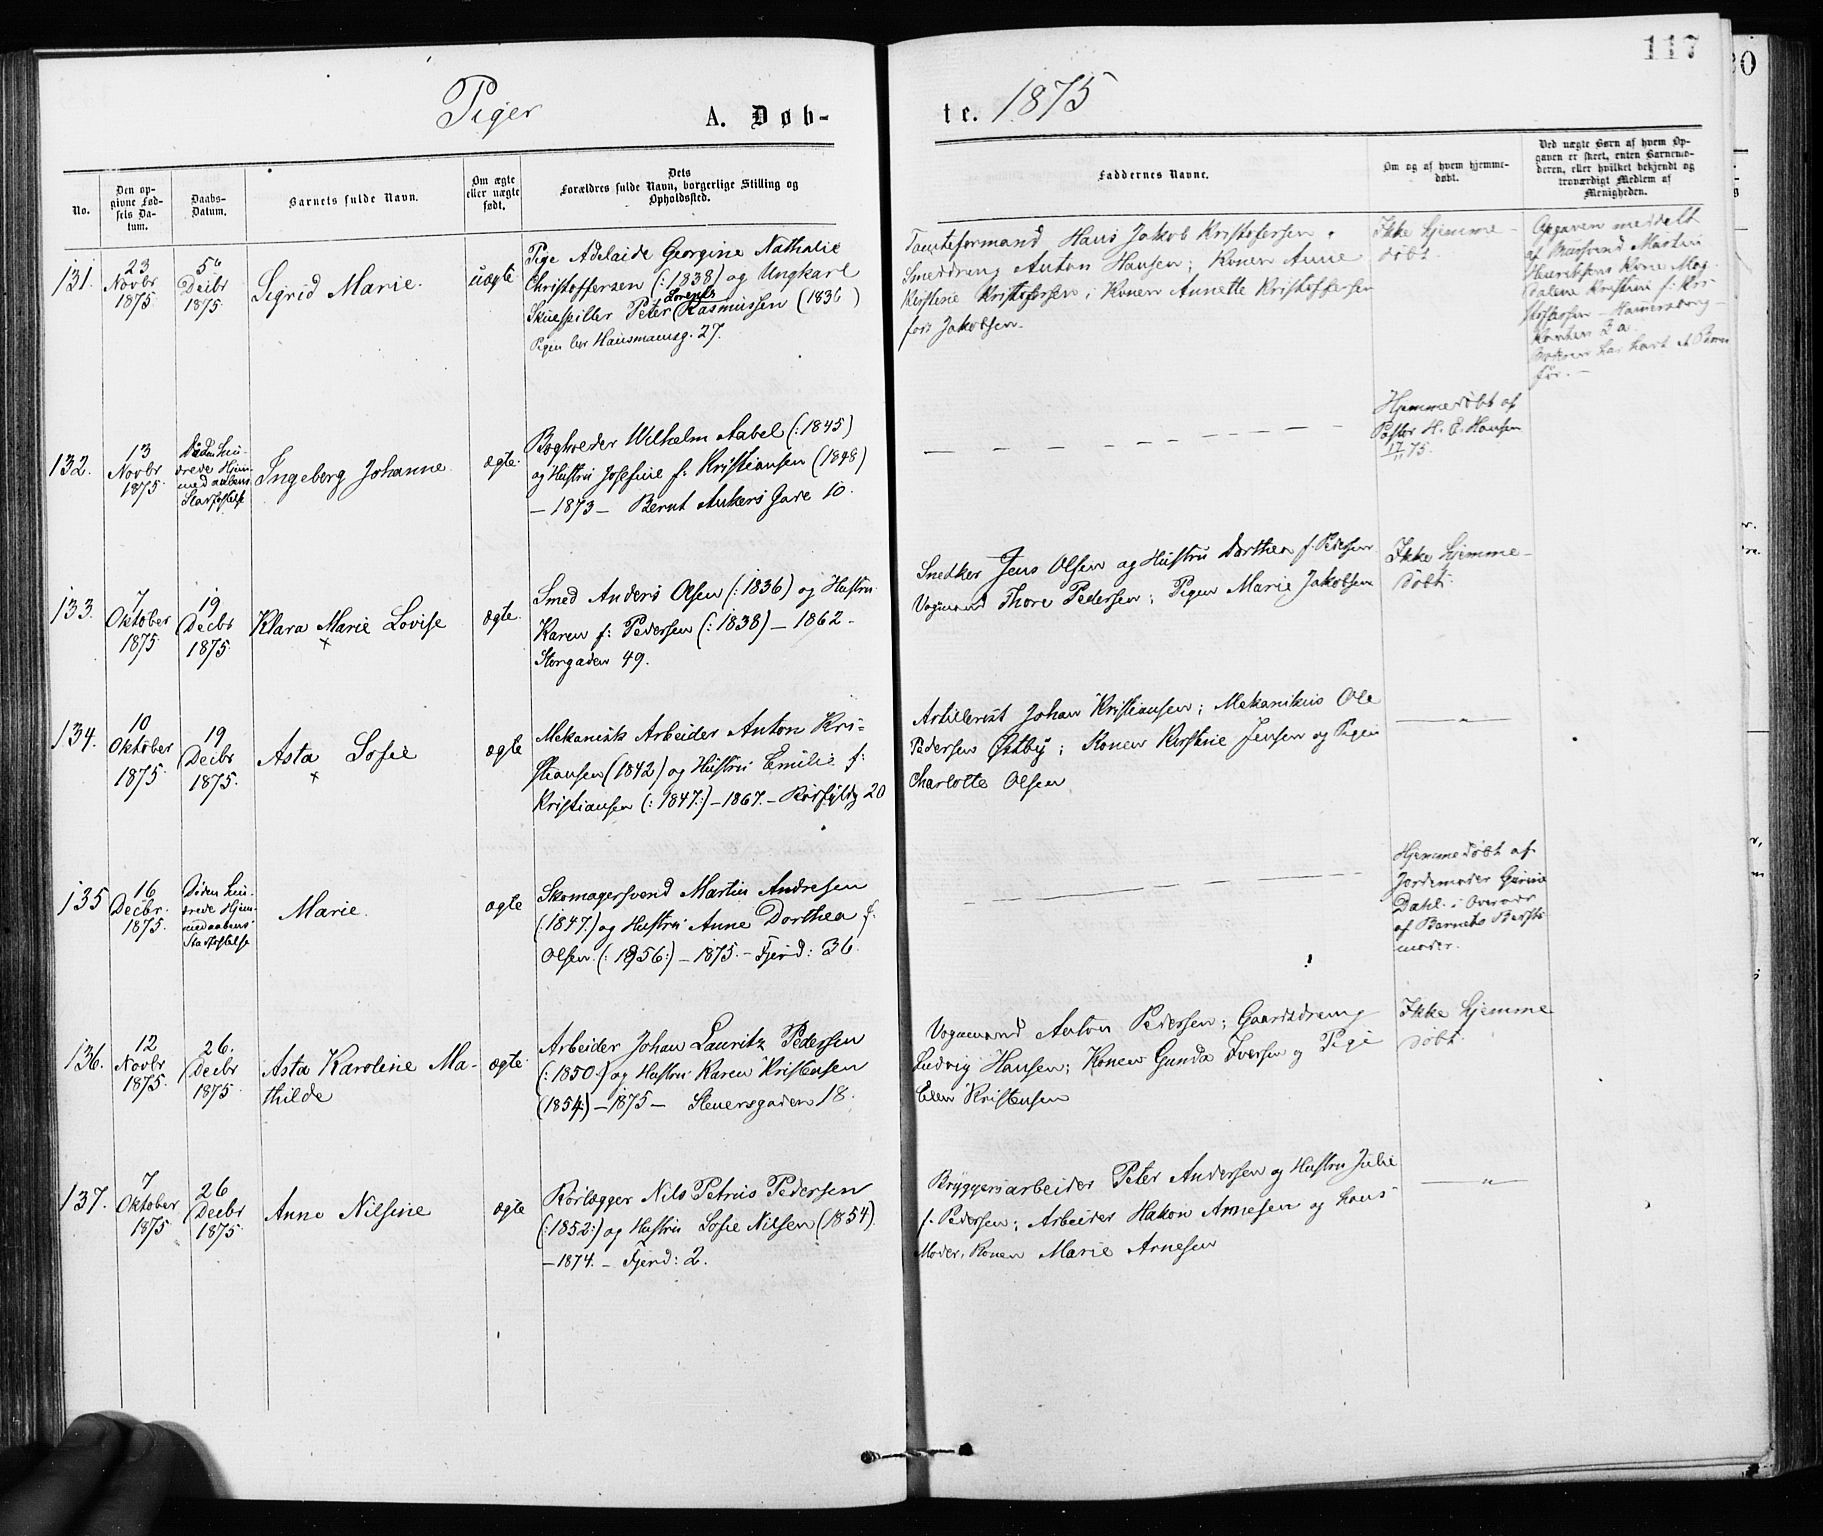 117
30
Piger
A. Døb-
te. 1875
No.
Den op-
givne Fød-
sels Da-
tum.
Daabs-
Datum.
Barnets fulde Navn.
Om ægte
eller uægte
født.
Dets
Forældres fulde Navn, borgerlige Stilling og
Opholdssted.
Faddernes Navne.
Om og af hvem hjemme-
døbt.
Ved uægte Børn af hvem Op-
gaven er skeet, enten Barnemo-
deren, eller hvilket bekjendt og
troværdigt Medlem af
Menigheden.
131.
23
Novbr
1875
5te
Decbr
1875
Sigrid Marie.
uægte
Pige Adelaide Georgine Nathalie
Christoffersen (: 1838) og Ungkarl
Skuespiller Peter Lorentz Rasmussen (1836)
Pigen bor Hausmannsg. 27.
Tomteformand Hans Jakob Kristofersen,
Smeddreng Anton Hansen; Konen Anne
Kristine Kristofersen; Konen Annette Kristoffersen
før Jakobsen.
Ikke hjemme-
døbt.
Opgaven meddelt
af Mursvend Martin
Henriksens Kone Mag-
dalene Kristine f: Kri-
stofersen - Hamersborg-
kanten 2 a.
Moderen har havt et Barn
før. -
132.
13
Novbr
1875
Døden hin-
drede Hjem-
medaabens
Stadfæstelse
Ingeborg Johanne
ægte
Bogholder Wilhelm Aabel (: 1845)
og Hustru Josefine f: Kristiansen (1848)
- 1873 - Bernt Ankers Gade 10.
- - - - - - - -
Hjemmedøbt af
Pastor H. C. Hansen
17/11 75.
133.
7
Oktober
1875
19
Decbr
1875
Klara Marie Lovise
x
ægte.
Smed Anders Olsen (: 1836) og Hustru
Karen f: Pedersen (: 1838) - 1862 -
Storgaden 49.
Snedker Jens Olsen og Hustru Dorthea f. Pedersen
Vogmand Thore Pedersen; Pigen Marie Jakobsen
Ikke hjemme-
døbt.
134.
10
Oktober
1875
19
Decbr
1875.
Asta Sofie
x
ægte
Mekanisk Arbeider Anton Kri-
stiansen (1842) og Hustru Emilie f:
Kristiansen (: 1847:) - 1867. - 20
Artillerist Johan Kristiansen; Mekanikus Ole
Pedersen Østby; Konen Kirstine Jensen og Pigen
Charlotte Olsen
- " -
135
16
Decbr.
1875.
Døden hin-
drede Hjem-
medaabens
Stadfæstelse
Marie.
ægte
Skomagersvend Martin Andresen
(: 1847.) og Hustru Anne Dorthea f:
Olsen. (: 1856:) - 1875. - Fjerd: 36.
- - - - - - - -
Hjemmedøbt af
Jordemoder Gurine
Dahl i Overvær
af Barnets Bedste-
moder.
136.
12
Novbr
1875.
26.
Decbr
1875.
Asta Karoline Ma-
thilde
ægte
Arbeider Johan Lauritz Pedersen
(: 1850:) og Hustru Karen Kristensen
(1854) - 1875 - Stenersgaden 18.
Vogmand Anton Pedersen; Gaardsdreng
Ludvig Hansen; Konen Gunda Iversen og Pige
Elen Kristensen
Ikke hjemme
døbt.
137.
7
Oktober
1875
26
Decbr
1875.
Anne Nilsine
ægte
Rørlægger Nils Petrus Pedersen
(: 1852:) og Hustru Sofie Nilsen (1854)
- 1874. - Fjerd: 2.
Bryggeriarbeider Peter Andersen og Hustru Julie
f. Pedersen; Arbeider Hakon Arnesen og hans
Moder, Konen Marie Arnesen
- " -